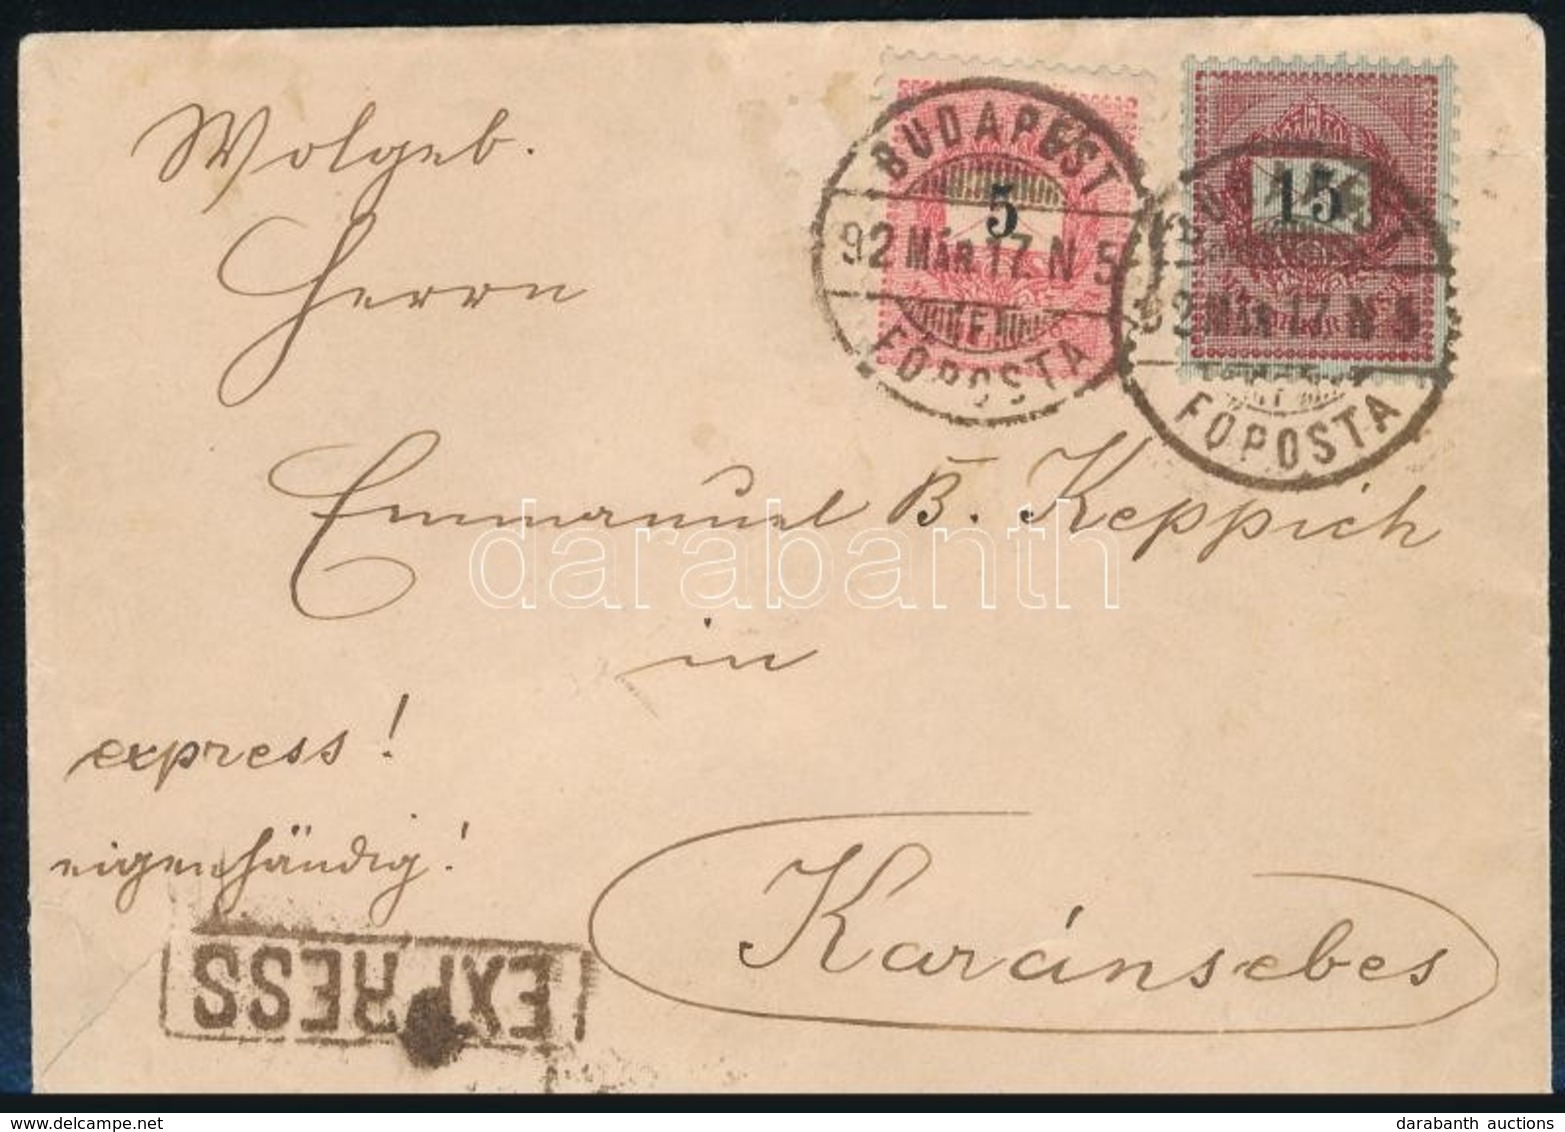 Wolgeb.
Herrn
Emmanuel B. Keppich
in
Karánsebes
express!
eigenhändig!
EXPRESS
BUDAPEST
92 MÁR. 17. N 5
FŐPOSTA
5
BUDAPEST
92 MÁR. 17. N 5
FŐPOSTA
15
darabanth
darabanth auctions